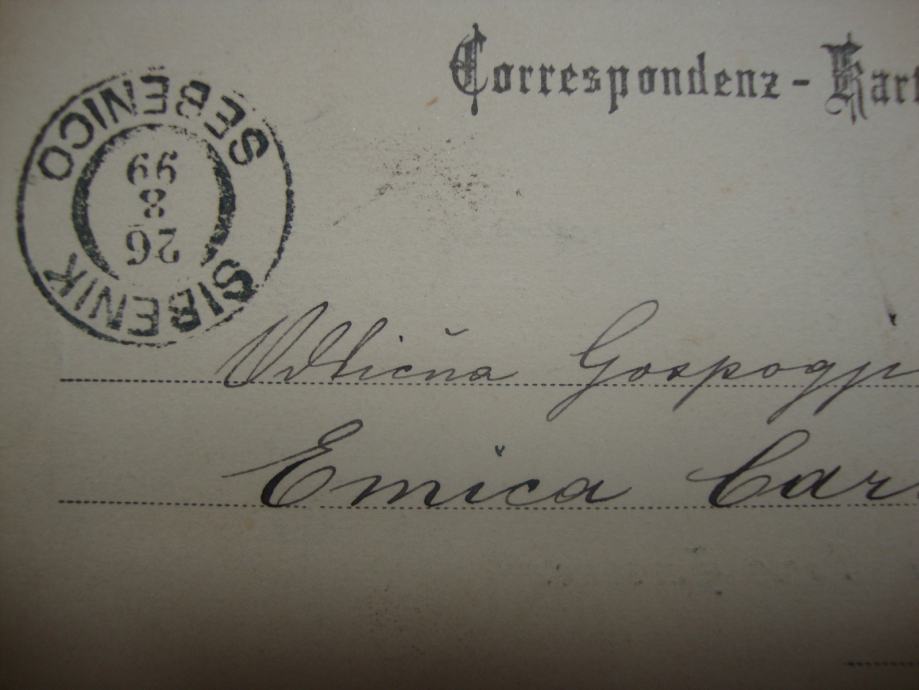 Correspondenz-Kart
SIBENIK
26
8
99
SEBENICO
Odlična Gospogj
Emica Car